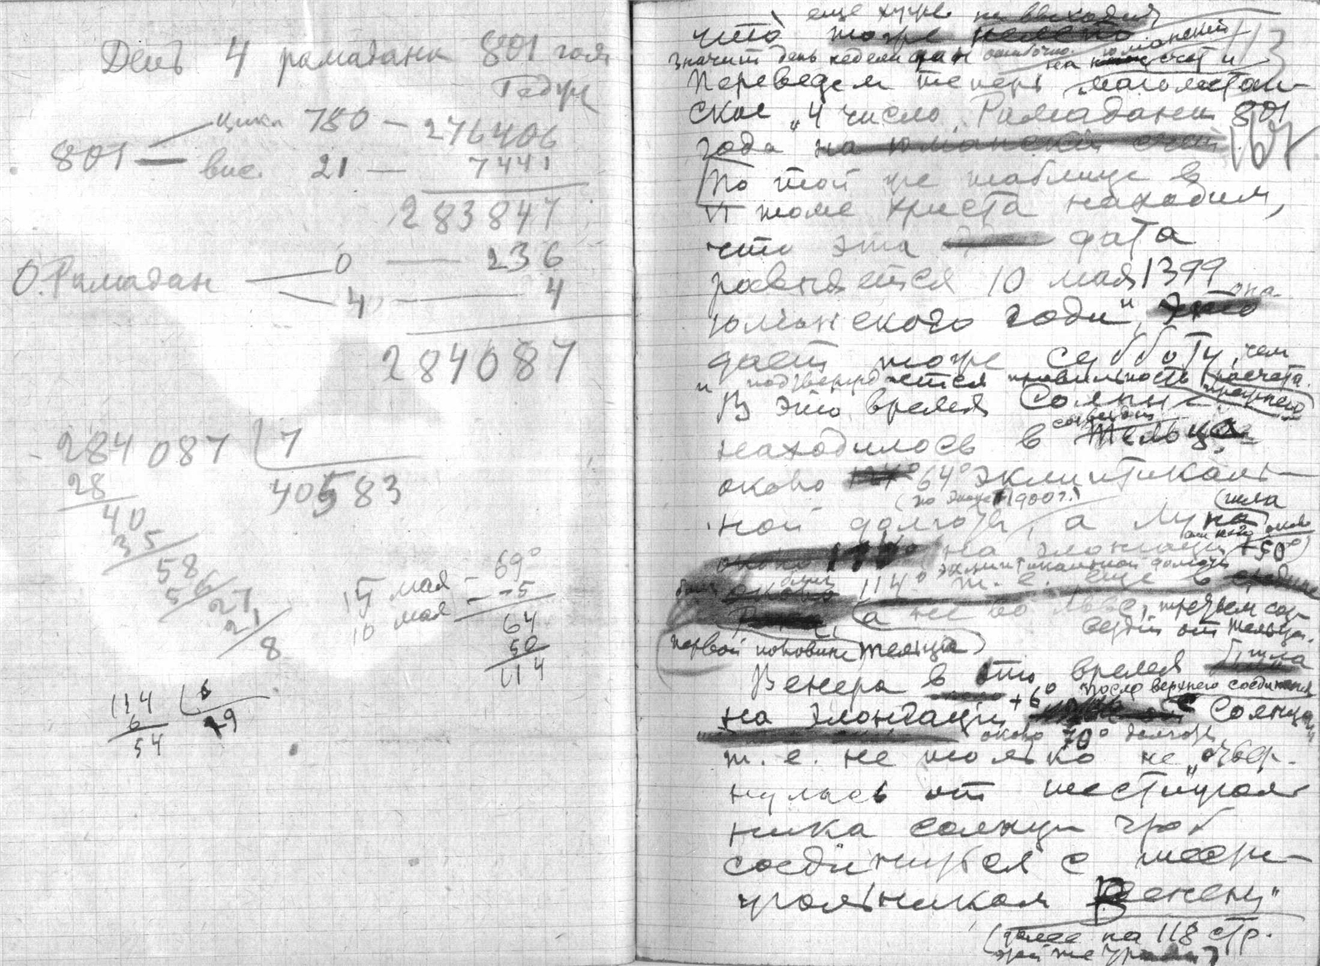 День 4 рамадана 801 года
801 — цикл 780 — 276406
21 — 7441
283847
О. Рамадан — 0 — 236
4 — 4
284087
284087 | 7
28 40583
40
35
58
56
27
21
8
15 мая — 69°
10 мая — -5
64
50
114
114 | 6
6 19
54
еще хуже не выходит
что тоже
значит день недели дан ошибочно
113
Переведем теперь магометан-
ское „4 число Рамадана 801
года на юлианский счет
167
По той же таблице в
II томе Христа находим,
что эта дата
равняется 10 мая 1399
юлианского года", она
дает тоже субботу, чем
и подтверждается правильность прежнего расчета.
В это время Солнце
находилось в созвездии Тельца
около 64° эклиптикаль-
(по эпохе 1900 г.)
ной долготы, а Луна шла
на элонгации +50°
эклиптикальной долготы
была близ 114° т. е. еще в
а не во Льве, третьем соз-
вездии от Тельца.
первой половине Тельца
Венера в это время шла
после верхнего соединения
на элонгации +6° Солнца
около 70° долготы
т. е. не только не „отвер-
нулась от шестиуголь-
ника солнца чтоб
соединиться с шести-
угольником Венеры"
(далее на 118 стр.